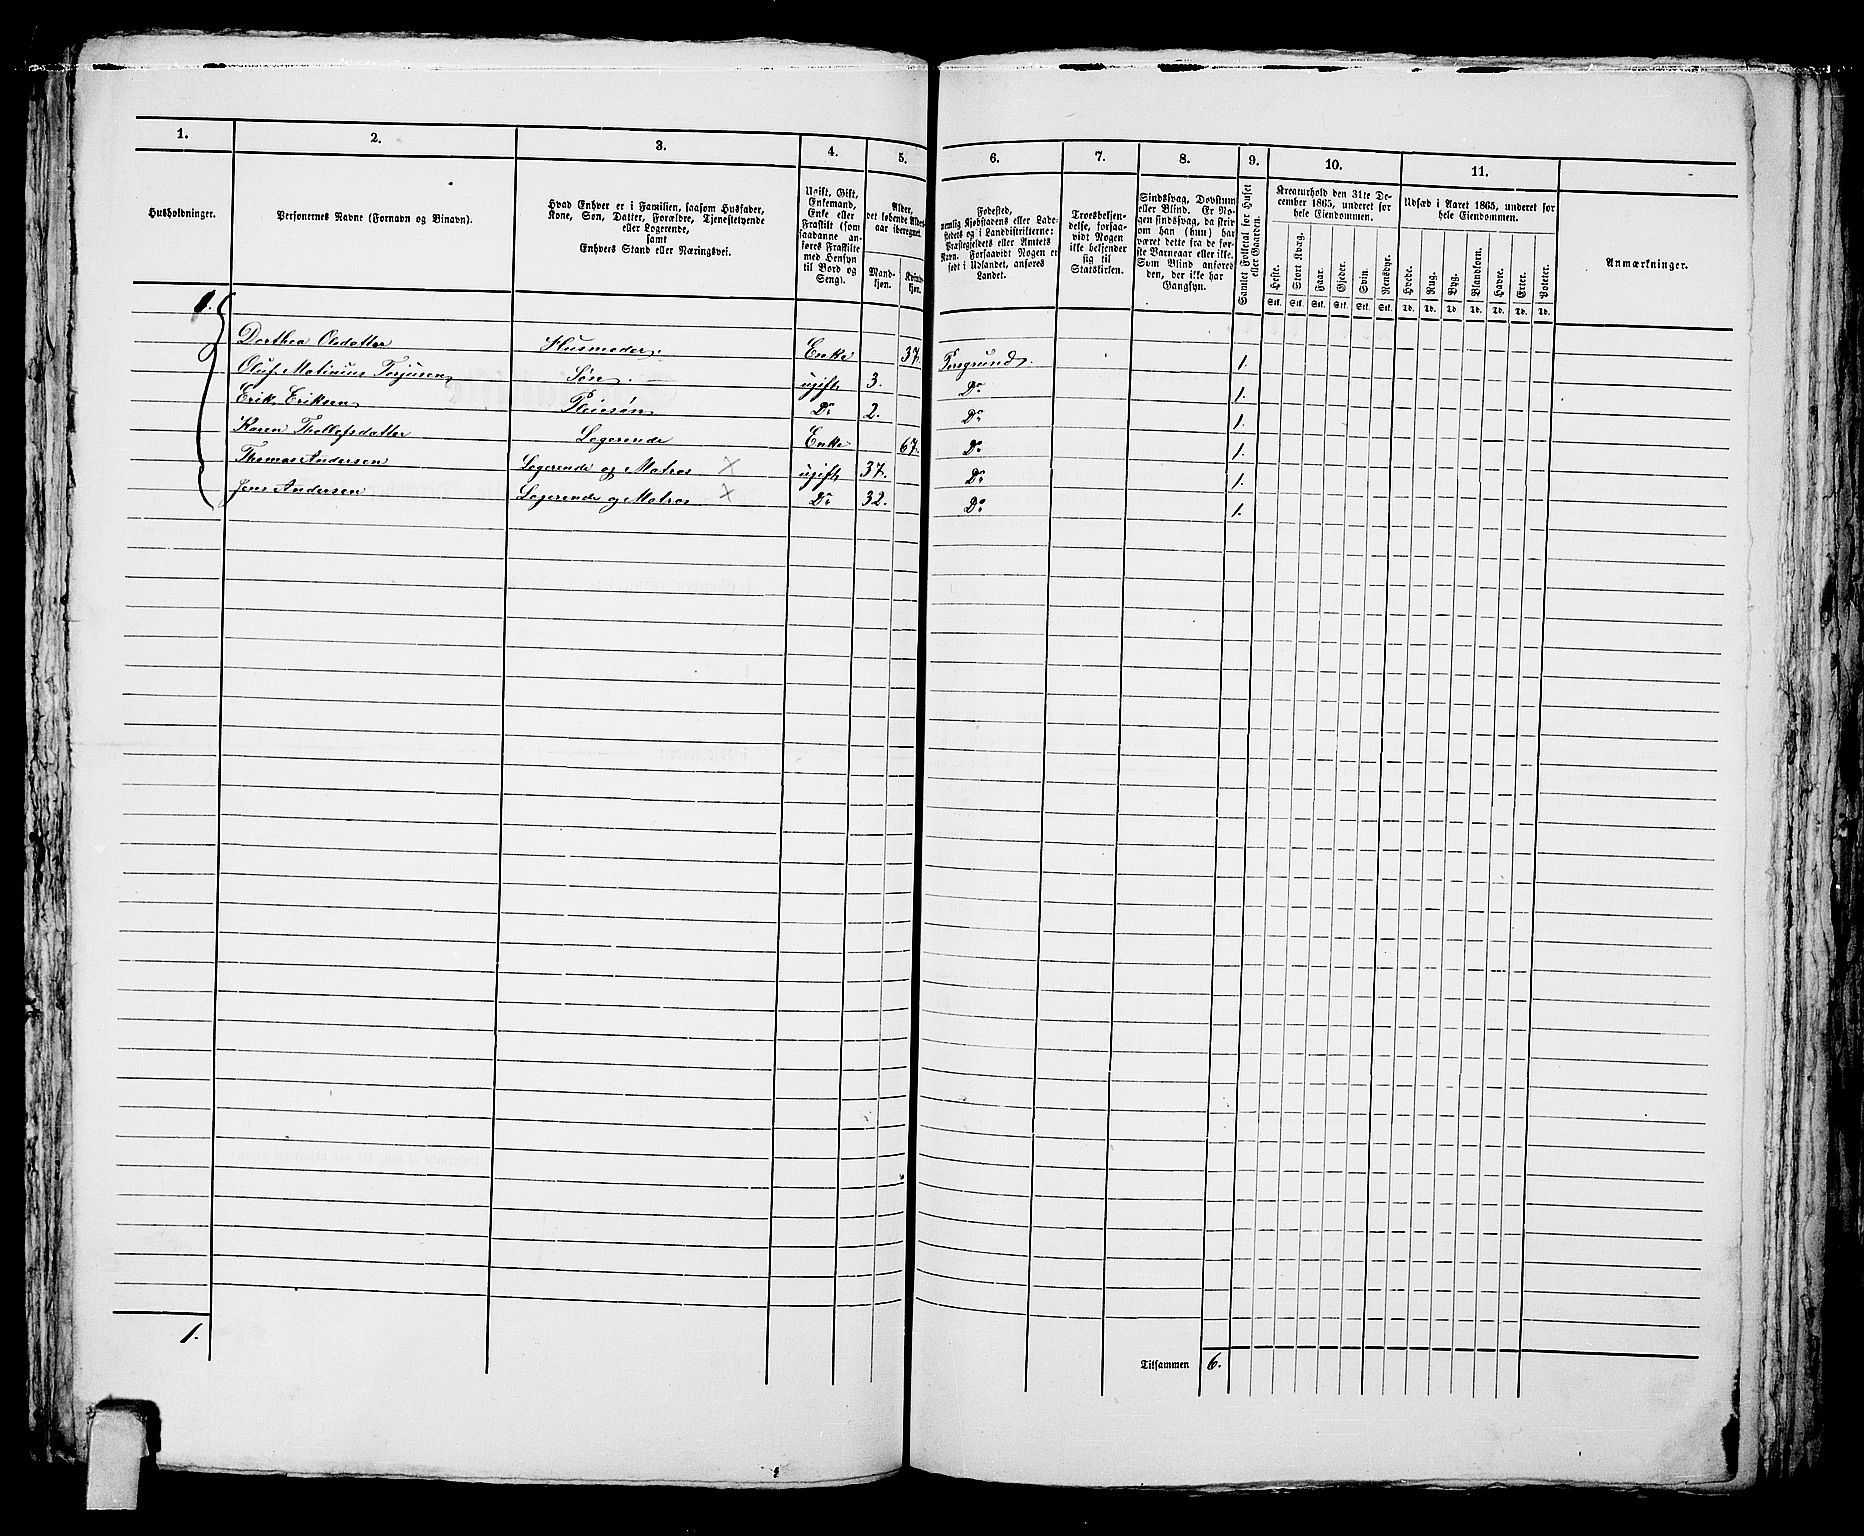 1. 2. 3. 4. 5. 6. 7. 8. 9. 10. 11.
Husholdninger.
Personernes Navne (Fornavn og Binavn).
Hvad Enhver er i Familien, saasom Husfader,
Kone, Søn, Datter, Forældre, Tjenestetyende
eller Logerende,
samt
Enhvers Stand eller Næringsvei.
Ugift, Gift,
Enkemand,
Enke eller
Fraskilt (som
saadanne an-
føres Fraskilte
med Hensyn
til Bord og
Seng).
Alder,
det løbende Alders-
aar iberegnet.
Mand-
kjøn.
Kvinde-
kjøn.
Fødested,
nemlig Kjøbstadens eller Lade-
stedets og i Landdistrikterne:
Præstegjeldets eller Amtets
Navn. Forsaavidt Nogen er
født i Udlandet, anføres
Landet.
Troesbekjen-
delse, forsaa-
vidt Nogen
ikke bekjender
sig til
Statskirken.
Sindssvag, Døvstum
eller Blind. Er No-
gen sindssvag, da skri-
om han (hun) har
været dette fra de før-
ste Barneaar eller ikke.
Som Blind anføres
den, der ikke har
Gangsyn.
Samlet Folketal for Huset
eller Gaarden.
Kreaturhold den 31te De-
cember 1865, underet for
hele Eiendommen.
Heste. Stort Kvæg. Faar. Gjeder. Svin. Rensdyr.
Stk. Stk. Stk. Stk. Stk. Stk.
Udsæd i Aaret 1865, underet for
hele Eiendommen.
Hvede. Rug. Byg. Blandkorn. Havre. Erter. Poteter.
Td. Td. Td Td. Td. Td. Td.
Anmærkninger.
1.
Dorthea Olsdatter Husmoder. Enke 37. Porsgrund. 1.
Oluf Matinius Terjusen Søn. ugift 3. Do 1.
Erik Eriksen Pleiesøn Do 2. Do 1.
Karen Thollefsdatter Logerende Enke 67. Do 1.
Thomas Andersen Logerende og Matros × ugift 37. Do 1.
Jens Andersen Logerende og Matros × Do 32. Do 1.
1.
Tilsammen 6.